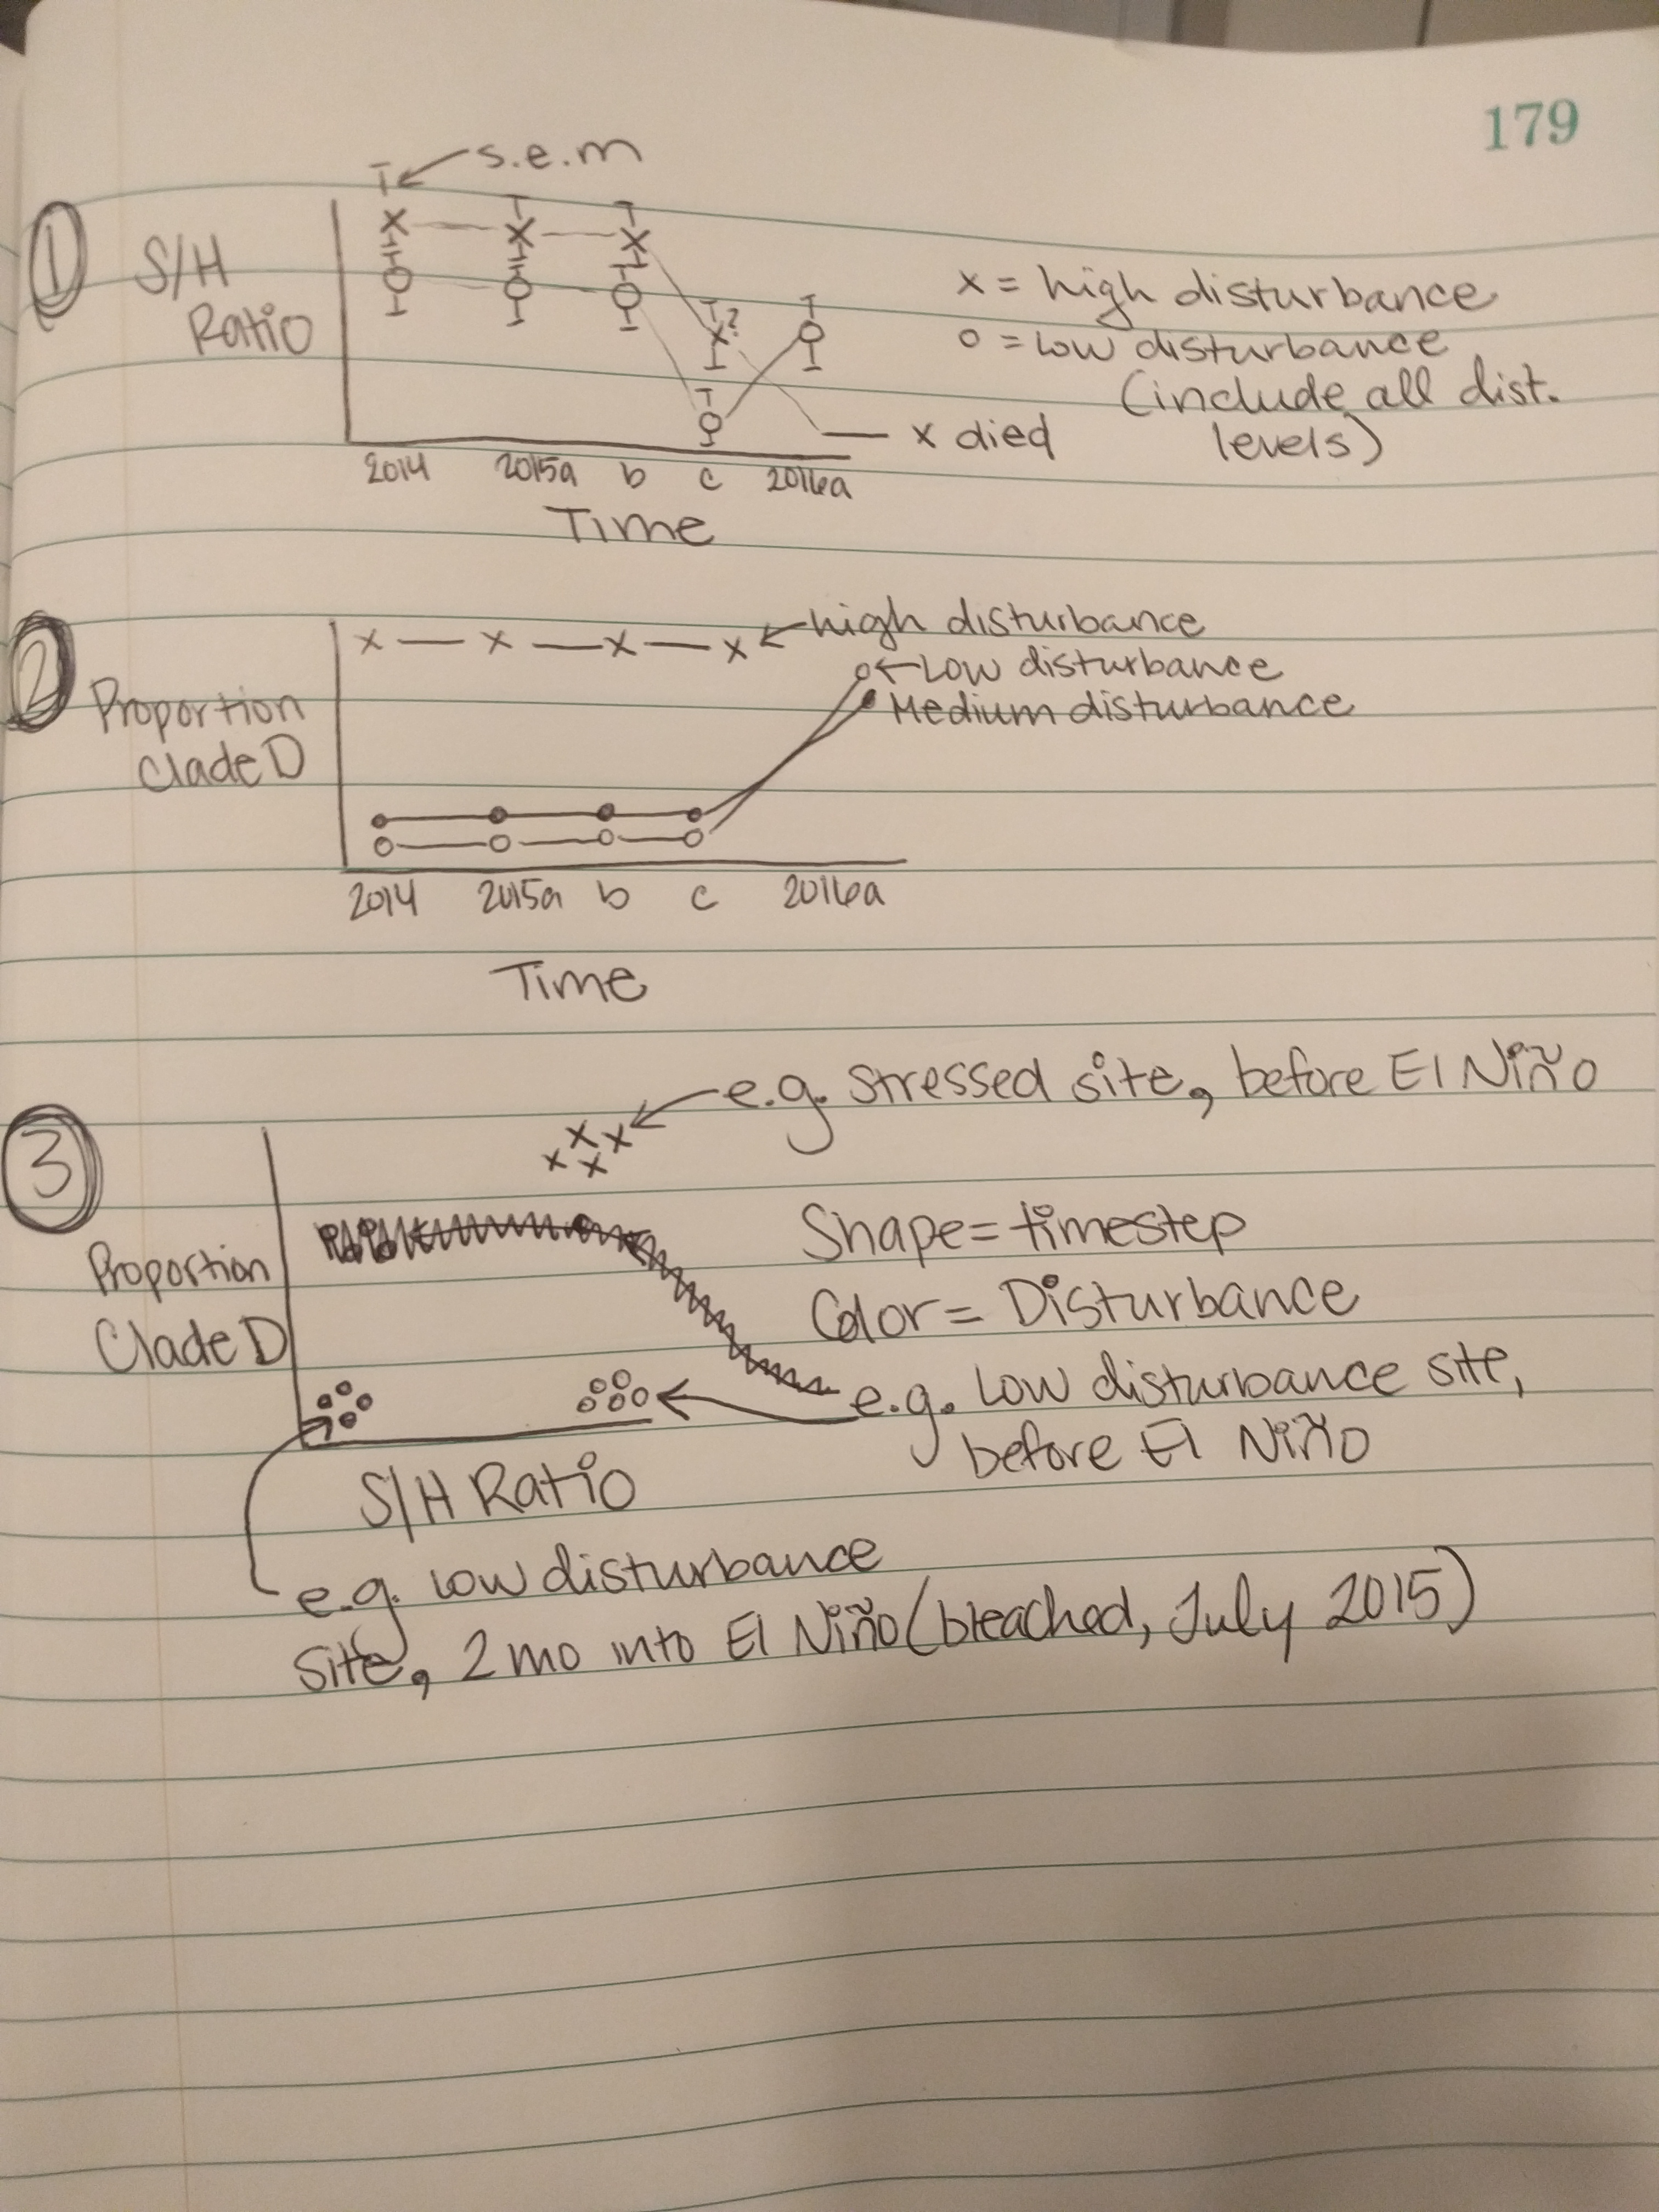 179
s.e.m
①
S/H
Ratio
x = high disturbance
o = Low disturbance
(include all dist.
levels)
?
x died
2014 2015a b c 2016a
Time
②
high disturbance
Low disturbance
Medium disturbance
Proportion
Clade D
2014 2015a b c 2016a
Time
③
e.g. Stressed site, before El Niño
Proportion
Clade D
Shape = timestep
Color = Disturbance
e.g. Low disturbance site,
before El Niño
S/H Ratio
e.g. Low disturbance
site, 2 mo into El Niño (bleached, July 2015)